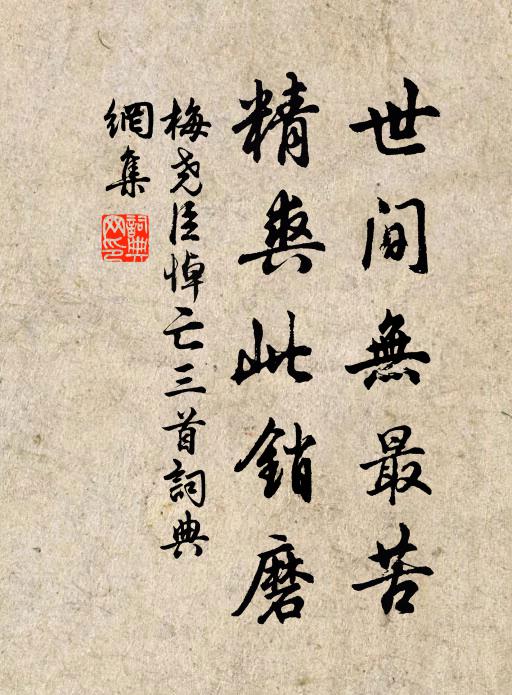 世间無最苦
精爽此銷磨
梅尧臣悼亡三首詞典
網集
詞典
网印